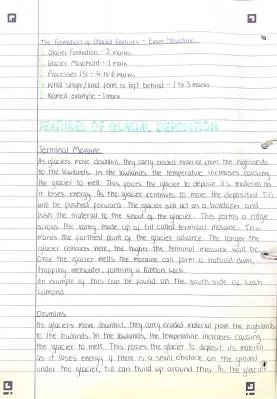 The Formation of Glacial Features - Exam Structure
1. Glacier Formation - 2 marks
2. Glacier Movement - 1 mark
3. Processes (3) - 4 to 6 marks
4. What shape/land form is left behind - 1 to 3 marks
5. Named example - 1 mark
FEATURES OF GLACIAL DEPOSITION
Terminal Moraine
As glaciers move downhill, they carry eroded material from the highlands
to the lowlands. In the lowlands, the temperature increases causing
the glacier to melt. This forces the glacier to deposit its material as
it loses energy. As the glacier continues to move the deposited till
will be pushed forward. The glacier will act as a bulldozer and
push the material to the snout of the glacier. This forms a ridge
across the valley made up of till called terminal moraine. This
marks the furthest point of the glaciers advance. The longer the
glacier remains here, the higher the terminal moraine will be.
Once the glacier melts the moraine can form a natural dam,
trapping meltwater, forming a Ribbon Loch.
An example of this can be found on the south side of Loch
Lomond.
Drumlins
As glaciers move downhill, they carry eroded material from the highlands
to the lowlands. In the lowlands, the temperature increases causing
the glacier to melt. This forces the glacier to deposit its material
as it loses energy. If there is a small obstacle on the ground
under the glacier, till can build up around this. As the glacier